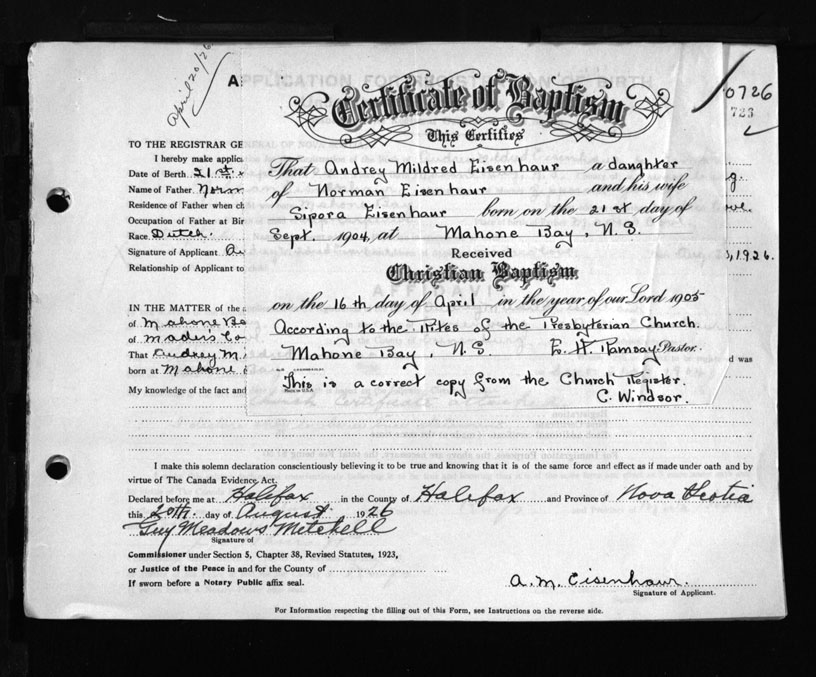 April 20/26
APPLICATION FOR REGISTRATION OF BIRTH
0726
726
Certificate of Baptism
This Certifies
TO THE REGISTRAR GE
I hereby make applic
Date of Birth 21st
Name of Father Norm
Residence of Father when ch
Occupation of Father at Bir
Race Dutch.
Signature of Applicant Au
Relationship of Applicant to
, 1926.
That Audrey Mildred Eisenhaur a daughter
of Norman Eisenhaur and his wife
Sipora Eisenhaur born on the 21st day of
Sept. 1904, at Mahone Bay, N.S.
Received
Christian Baptism
on the 16th day of April in the year of our Lord 1905
According to the Rites of the Presbyterian Church.
Mahone Bay, N.S. E. H. Ramsay Pastor.
This is a correct copy from the Church Register.
C. Windsor.
IN THE MATTER of the
of Mahone Ba
of Maders Co
That Audrey M
born at Mahone
d was
My knowledge of the fact and
I make this solemn declaration conscientiously believing it to be true and knowing that it is of the same force and effect as if made under oath and by
virtue of The Canada Evidence Act.
Declared before me at Halifax in the County of Halifax and Province of Nova Scotia
this 20th. day of August 1926
Guy Meadows Mitchell
Signature of
Commissioner under Section 5, Chapter 38, Revised Statutes, 1923,
or Justice of the Peace in and for the County of
If sworn before a Notary Public affix seal.
A. M. Eisenhaur.
Signature of Applicant.
For Information respecting the filling out of this Form, see Instructions on the reverse side.